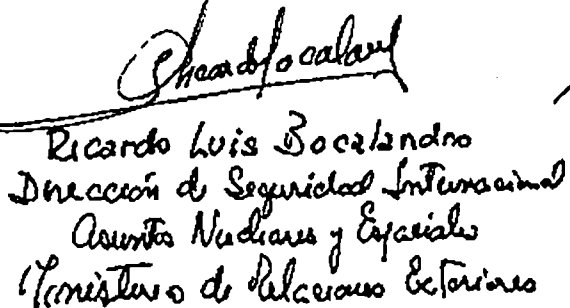 Ricardo Luis Bocalandro
Dirección de Seguridad Internacional
Asuntos Nucleares y Espaciales
Ministerio de Relaciones Exteriores